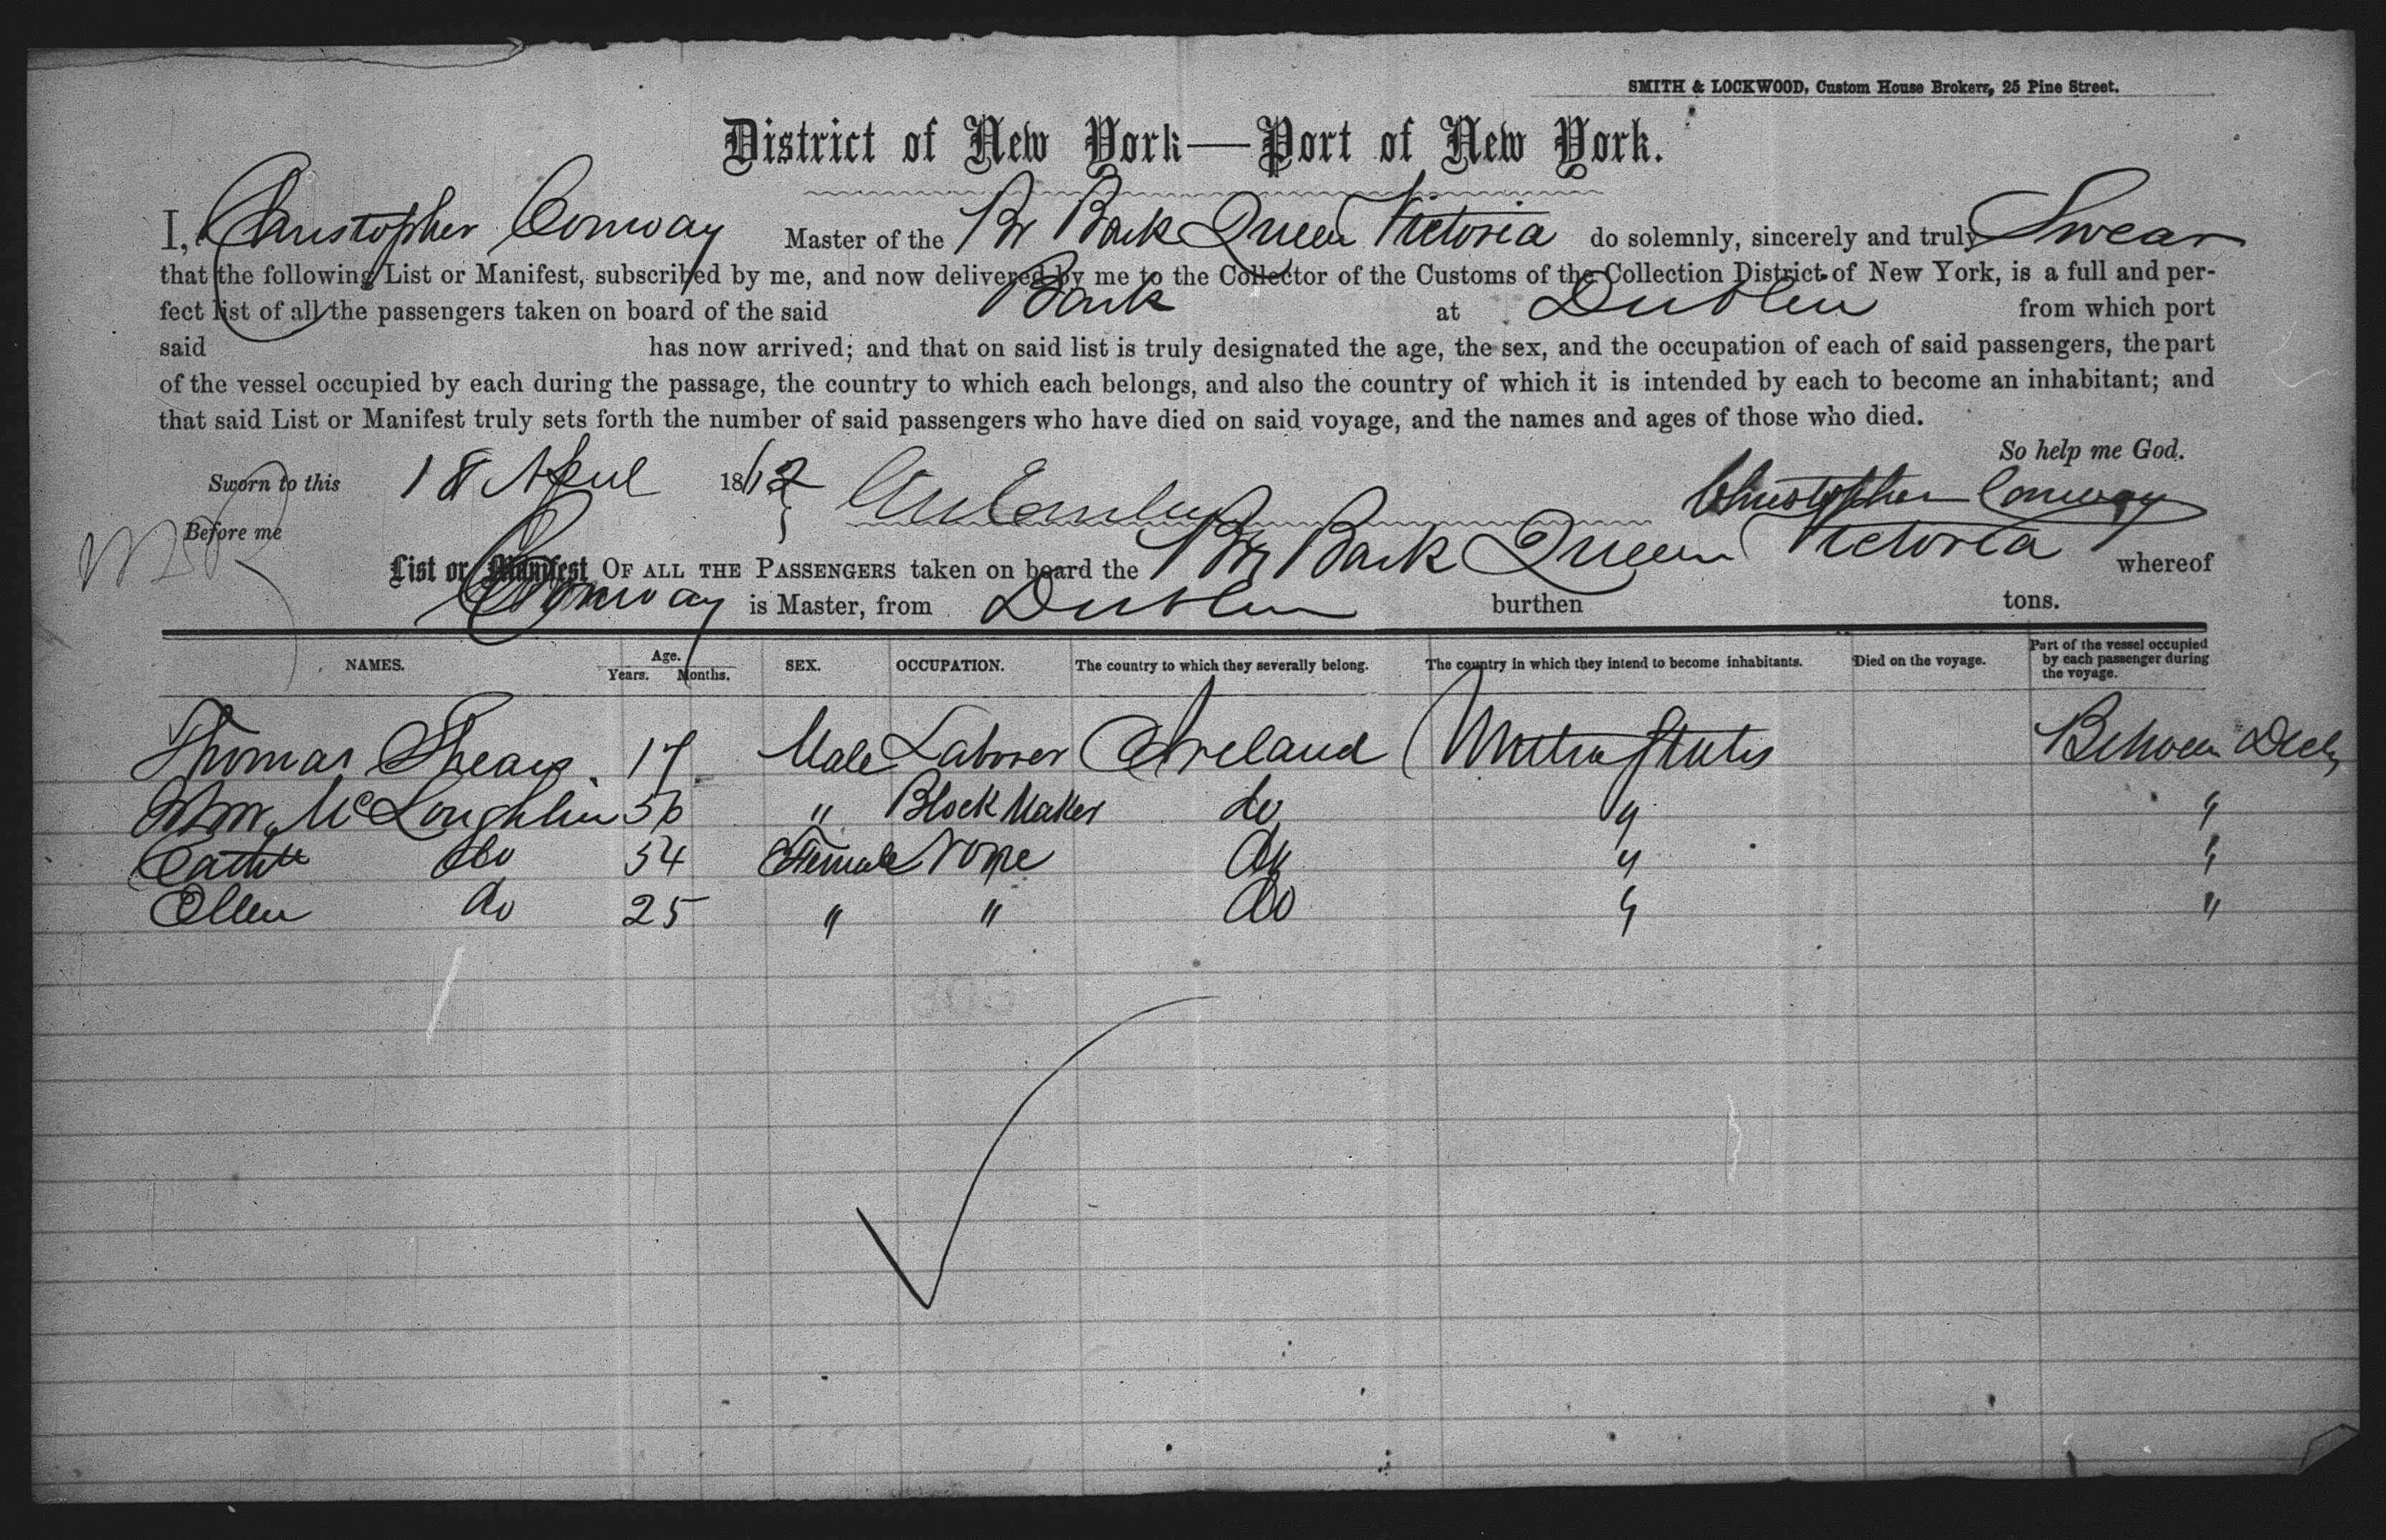 SMITH & LOCKWOOD, Custom House Brokers, 25 Pine Street.
District of New York—Port of New York.
I, Christopher Conway Master of the Br Bark Queen Victoria do solemnly, sincerely and truly Swear
that the following List or Manifest, subscribed by me, and now delivered by me to the Collector of the Customs of the Collection District of New York, is a full and per-
fect list of all the passengers taken on board of the said Bark at Dublin from which port
said has now arrived; and that on said list is truly designated the age, the sex, and the occupation of each of said passengers, the part
of the vessel occupied by each during the passage, the country to which each belongs, and also the country of which it is intended by each to become an inhabitant; and
that said List or Manifest truly sets forth the number of said passengers who have died on said voyage, and the names and ages of those who died.
So help me God.
Sworn to this 18 April 1862 Christopher Conway
Before me
List or Manifest OF ALL THE PASSENGERS taken on board the Br Bark Queen Victoria whereof
Conway is Master, from Dublin burthen tons.
NAMES. Age. Years. Months. SEX. OCCUPATION. The country to which they severally belong. The country in which they intend to become inhabitants. Died on the voyage. Part of the vessel occupied by each passenger during the voyage.
Thomas 17 Male Laborer Ireland United States Between Decks
Wm McLoughlin 56 " Block Maker do " "
Cathe do 54 Female None do " "
Ellen do 25 " " do " "